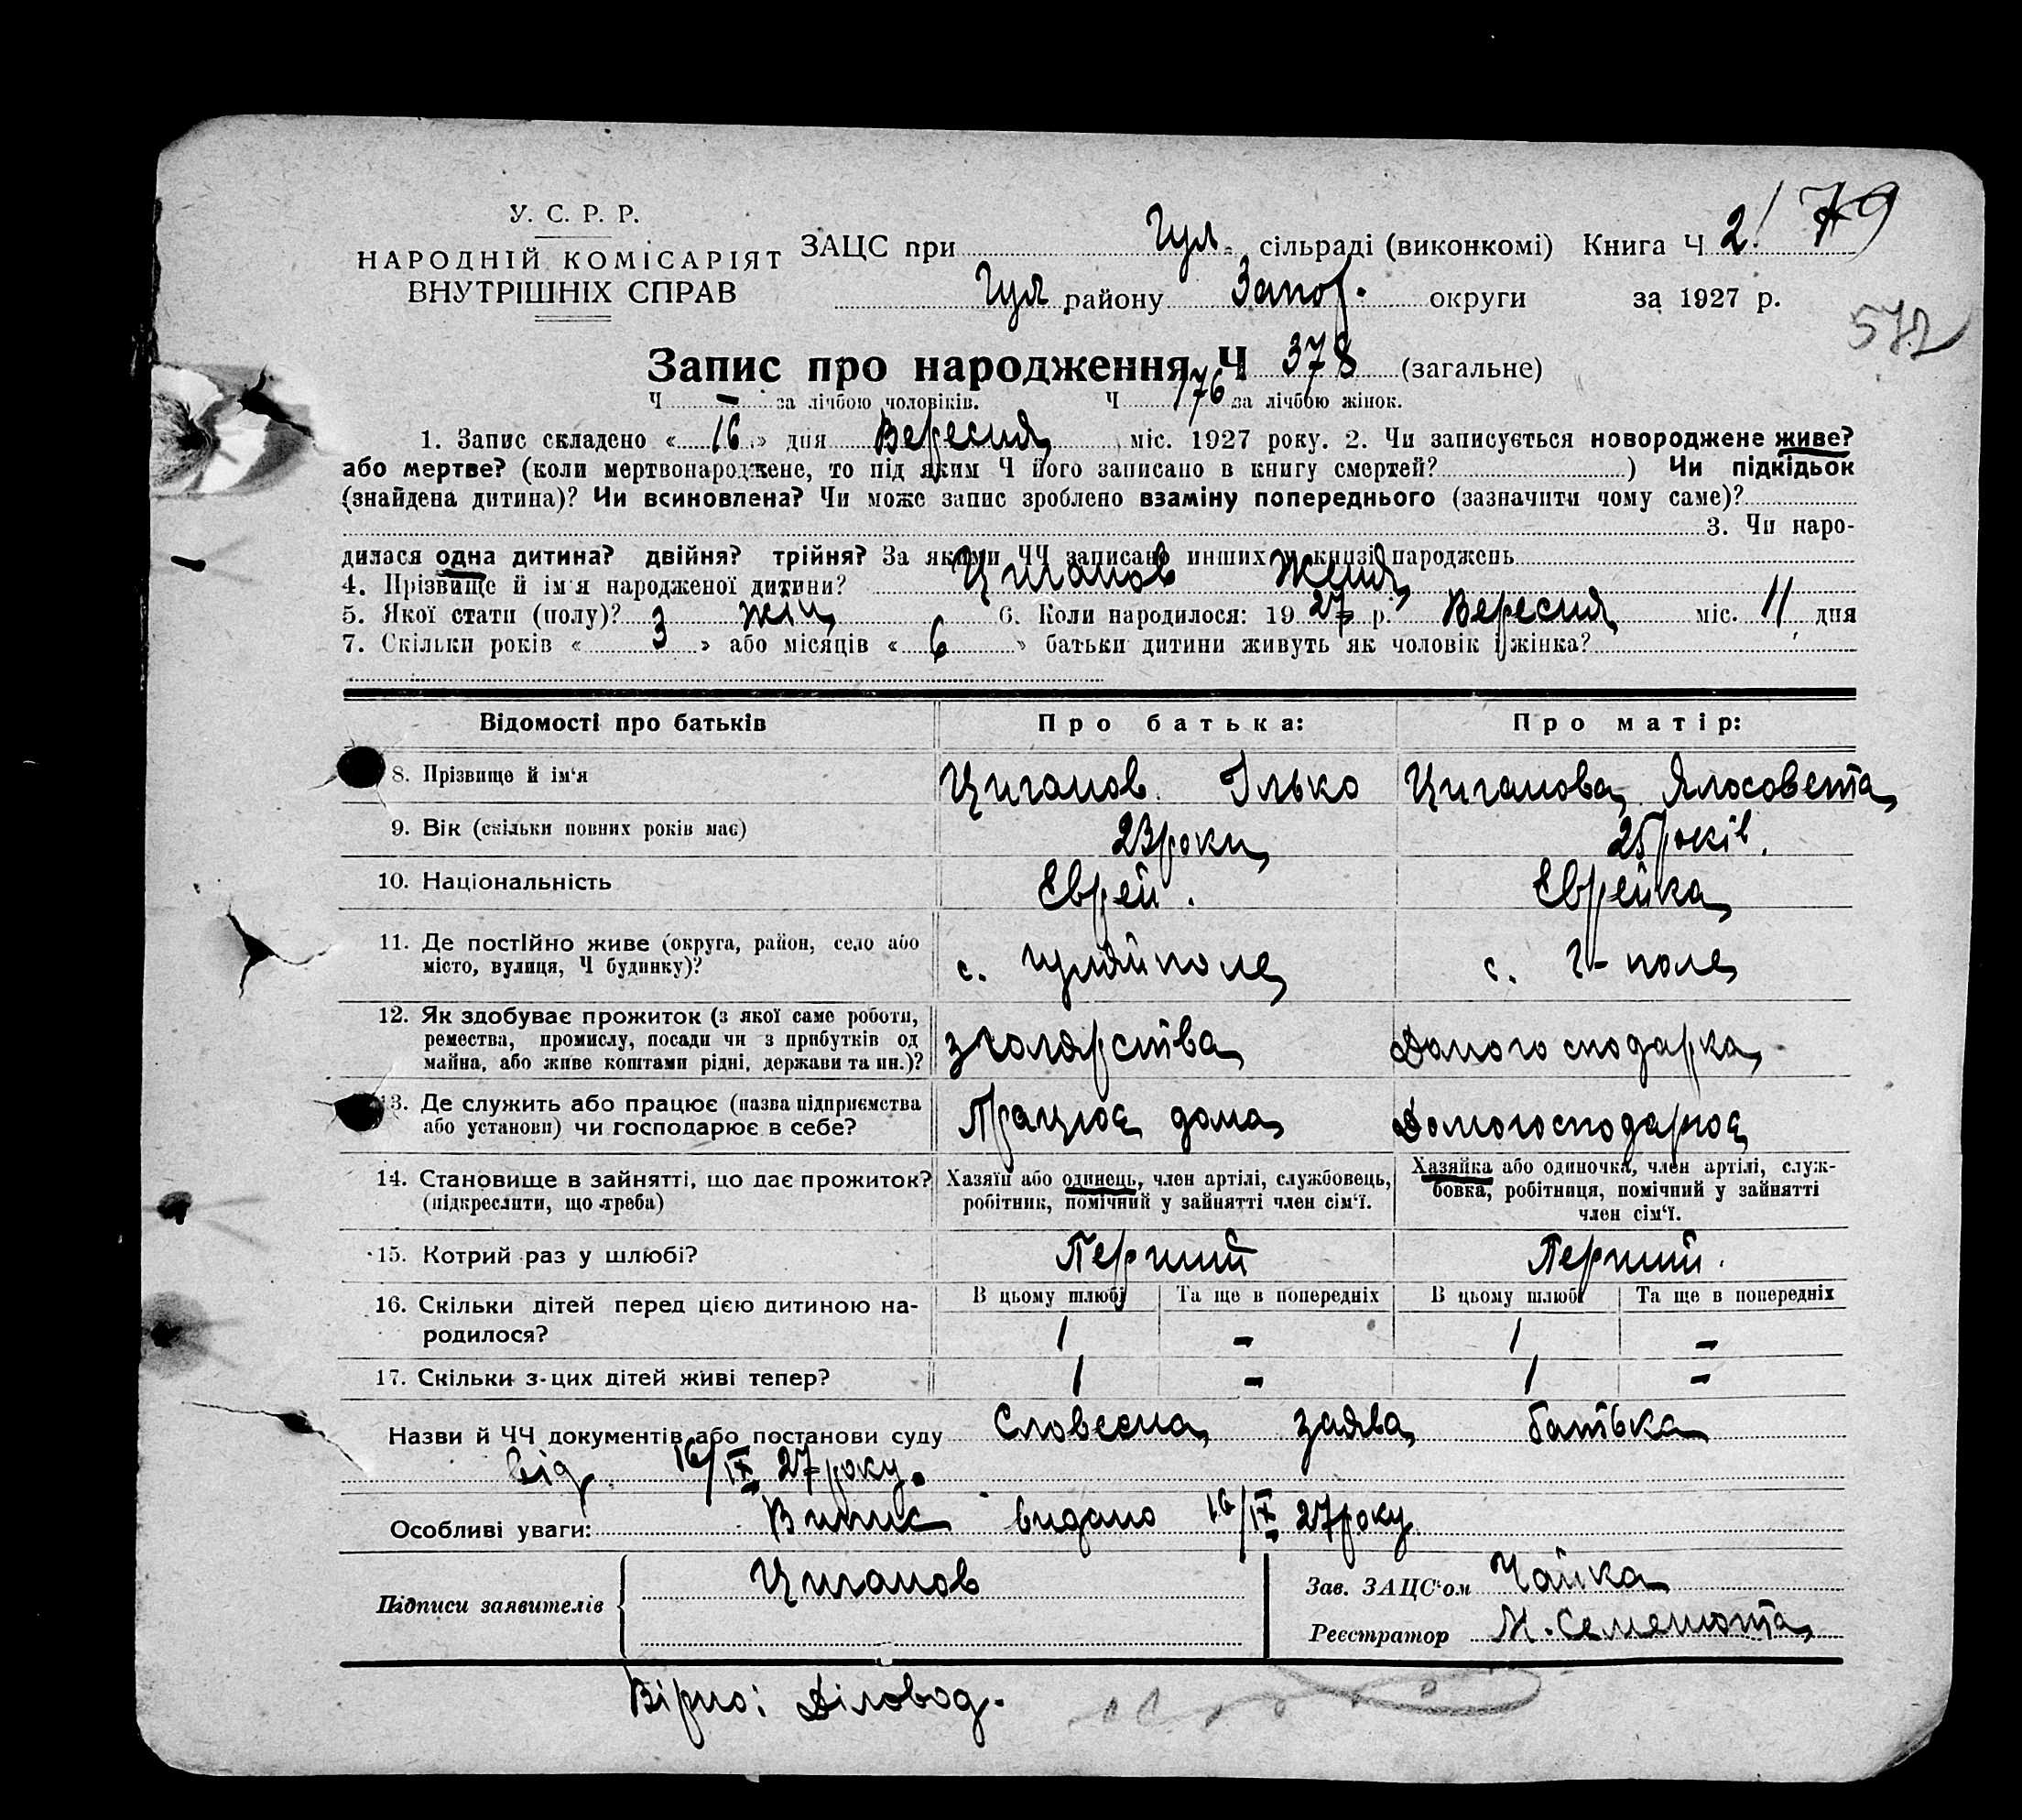 У. С. Р. Р.
НАРОДНІЙ КОМІСАРІЯТ
ВНУТРІШНІХ СПРАВ
ЗАЦС при Гул. сільраді (виконкомі) Книга Ч 2. 79
Гул району Запор. округи за 1927 р.
572
Запис про народження Ч 378 (загальне)
Ч - за лічбою чоловіків. Ч 176 за лічбою жінок.
1. Запис складено « 16 » дня Вересня міс. 1927 року. 2. Чи записується новороджене живе?
або мертве? (коли мертвонароджене, то під яким Ч його записано в книгу смертей? ) Чи підкідьок
(знайдена дитина)? Чи всиновлена? Чи може запис зроблено взаміну попереднього (зазначити чому саме)?
3. Чи наро-
дилася одна дитина? двійня? трійня? За якими ЧЧ записано инших в книзі народжень
4. Прізвище й ім'я народженої дитини? Циганов Женя
5. Якої стати (полу)? жін 6. Коли народилося: 1927 р. Вересня міс. 11 дня
7. Скільки років « 3 » або місяців « 6 » батьки дитини живуть як чоловік і жінка?
Відомості про батьків Про батька: Про матір:
8. Прізвище й ім'я Циганов Ілько Циганова Ялосовета
9. Вік (скільки повних років має) 23 роки 25 років.
10. Національність Єврей. Єврейка
11. Де постійно живе (округа, район, село або
місто, вулиця, Ч будинку)? с. Гуляйполе с. Г-поле
12. Як здобуває прожиток (з якої саме роботи,
ремества, промислу, посади чи з прибутків од
майна, або живе коштами рідні, держави та ин.)? Домогосподарка
13. Де служить або працює (назва підприємства
або установи) чи господарює в себе? Працює дома Домогосподарює
14. Становище в зайнятті, що дає прожиток?
(підкреслити, що треба)
Хазяїн або одинець, член артілі, службовець,
робітник, помічний у зайнятті член сім'ї.
Хазяйка або одиночка, член артілі, служ-
бовка, робітниця, помічний у зайнятті
член сім'ї.
15. Котрий раз у шлюбі? Перший Перший.
16. Скільки дітей перед цією дитиною на-
родилося?
В цьому шлюбі Та ще в попередніх В цьому шлюбі Та ще в попередніх
1 - 1 -
17. Скільки з-цих дітей живі тепер? 1 - 1 -
Назви й ЧЧ документів або постанови суду Словесна заява батька
від 16/IX 27 року.
Особливі уваги: Випис видано 16/IX 27 року
Підписи заявителів Циганов
Зав. ЗАЦС'ом Чайка
Реєстратор М. Семенюта
Вірно: Діловод.